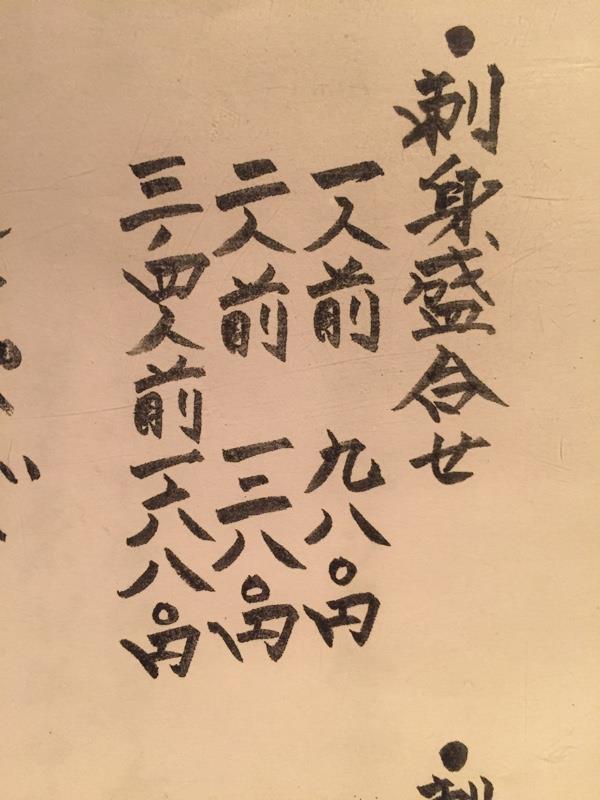 ・刺身盛合せ
一人前 九八〇円
二人前 一三八〇円
三、四人前 一六八〇円